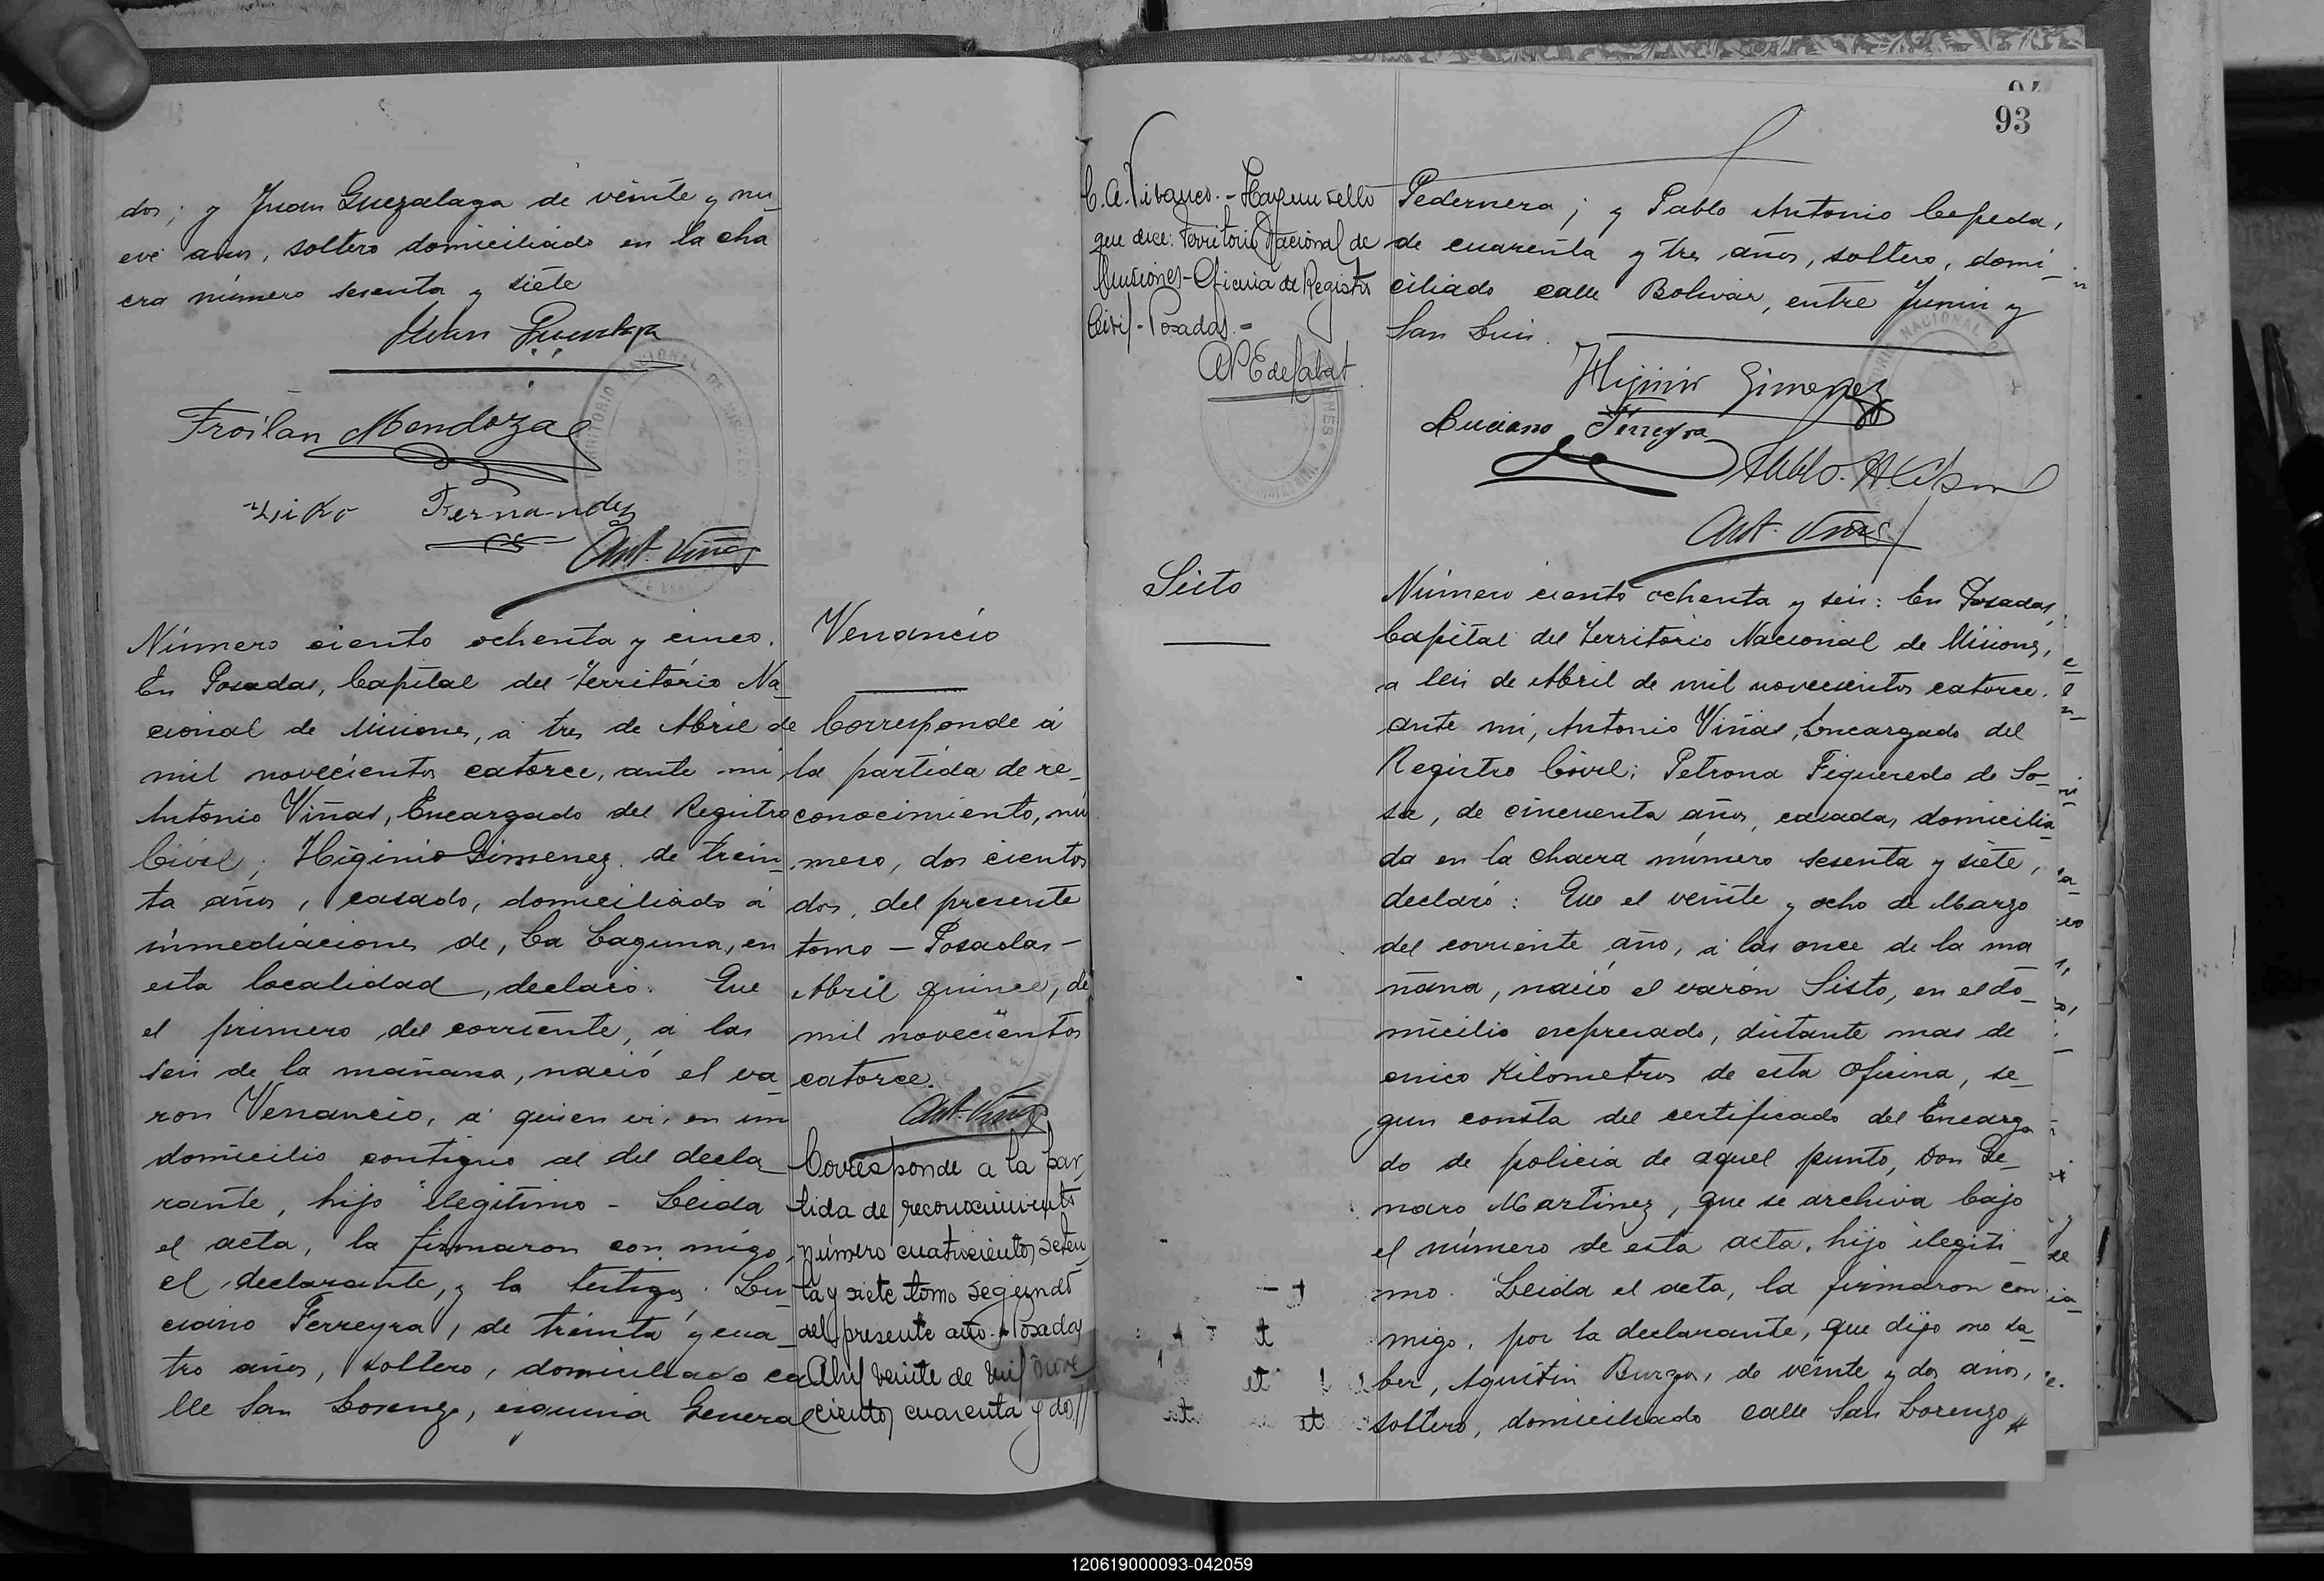 dos; y Juan Guezalaga de veinte y nu_
eve años, soltero domiciliado en la cha
cra número sesenta y siete
Juan
Froilan Mendoza
Fernandez
Ant. Viñas
Número ciento ochenta y cinco.
En Posadas, Capital del Territorio Na_
cional de Misiones, á tres de Abril de
mil novecientos catorce, ante mi,
Antonio Viñas, Encargado del Registro
Civil; Higinio Gimenez de trein_
ta años, casado, domiciliado á
inmediaciones de, La Laguna, en
esta localidad, declaró. Que
el primero del corriente, á las
seis de la mañana, nació el va_
ron Venancio, á quien vi, en un
domicilio contiguo al del decla_
rante, hijo ilegitimo - Leida
el acta, la firmaron con migo,
el declarante, y los testigos: Lu_
ciano Ferreyra, de treinta y cua_
tro años, soltero, domiciliado ca
lle San Lorenzo, esquina General
Venancio
Corresponde á
la partida de re_
conocimiento, nú
mero, dos cientos
dos, del presente
tomo - Posadas -
Abril quince, de
mil novecientos
catorce.
Ant. Viñas
Corresponde a la par_
tida de reconocimiento
número cuatrocientos seten_
ta y siete tomo segundo
del presente año. Posadas
Abril veinte de mil nove
cientos cuarenta y dos//
93
C. A. Hay un sello
que dice: Territorio Nacional de
Misiones - Oficina de Registro
Civil - Posadas. -
Pedernera; y Pablo Antonio Cepeda,
de cuarenta y tres años, soltero, domi_
ciliado calle Bolivar, entre Junin y
San Luis.
Higinio Gimenez
Luciano Ferreyra
Pablo. A.
Ant. Viñas
Sisto
Número ciento ochenta y seis: En Posadas,
Capital del Territorio Nacional de Misiones,
a seis de Abril de mil novecientos catorce.
ante mi, Antonio Viñas, Encargado del
Registro Civil; Petrona Figueredo de So_
sa, de cincuenta años, casada, domicilia_
da en la chacra número sesenta y siete,
declaró: Que el veinte y ocho de Marzo
del corriente año, á las once de la ma
ñana, nació el varón Sisto, en el do_
micilio expresado, distante mas de
cinco Kilometros de esta Oficina, se_
gun consta del certificado del Encarga
do de policia de aquel punto, Don Ge_
naro Martinez, que se archiva bajo
el número de esta acta, hijo ilegiti_
mo. Leida el acta, la firmaron con
migo, por la declarante, que dijo no sa_
ber, Agustin Burgos, de veinte y dos años,
soltero, domiciliado calle San Lorenzo
120619000093-042059